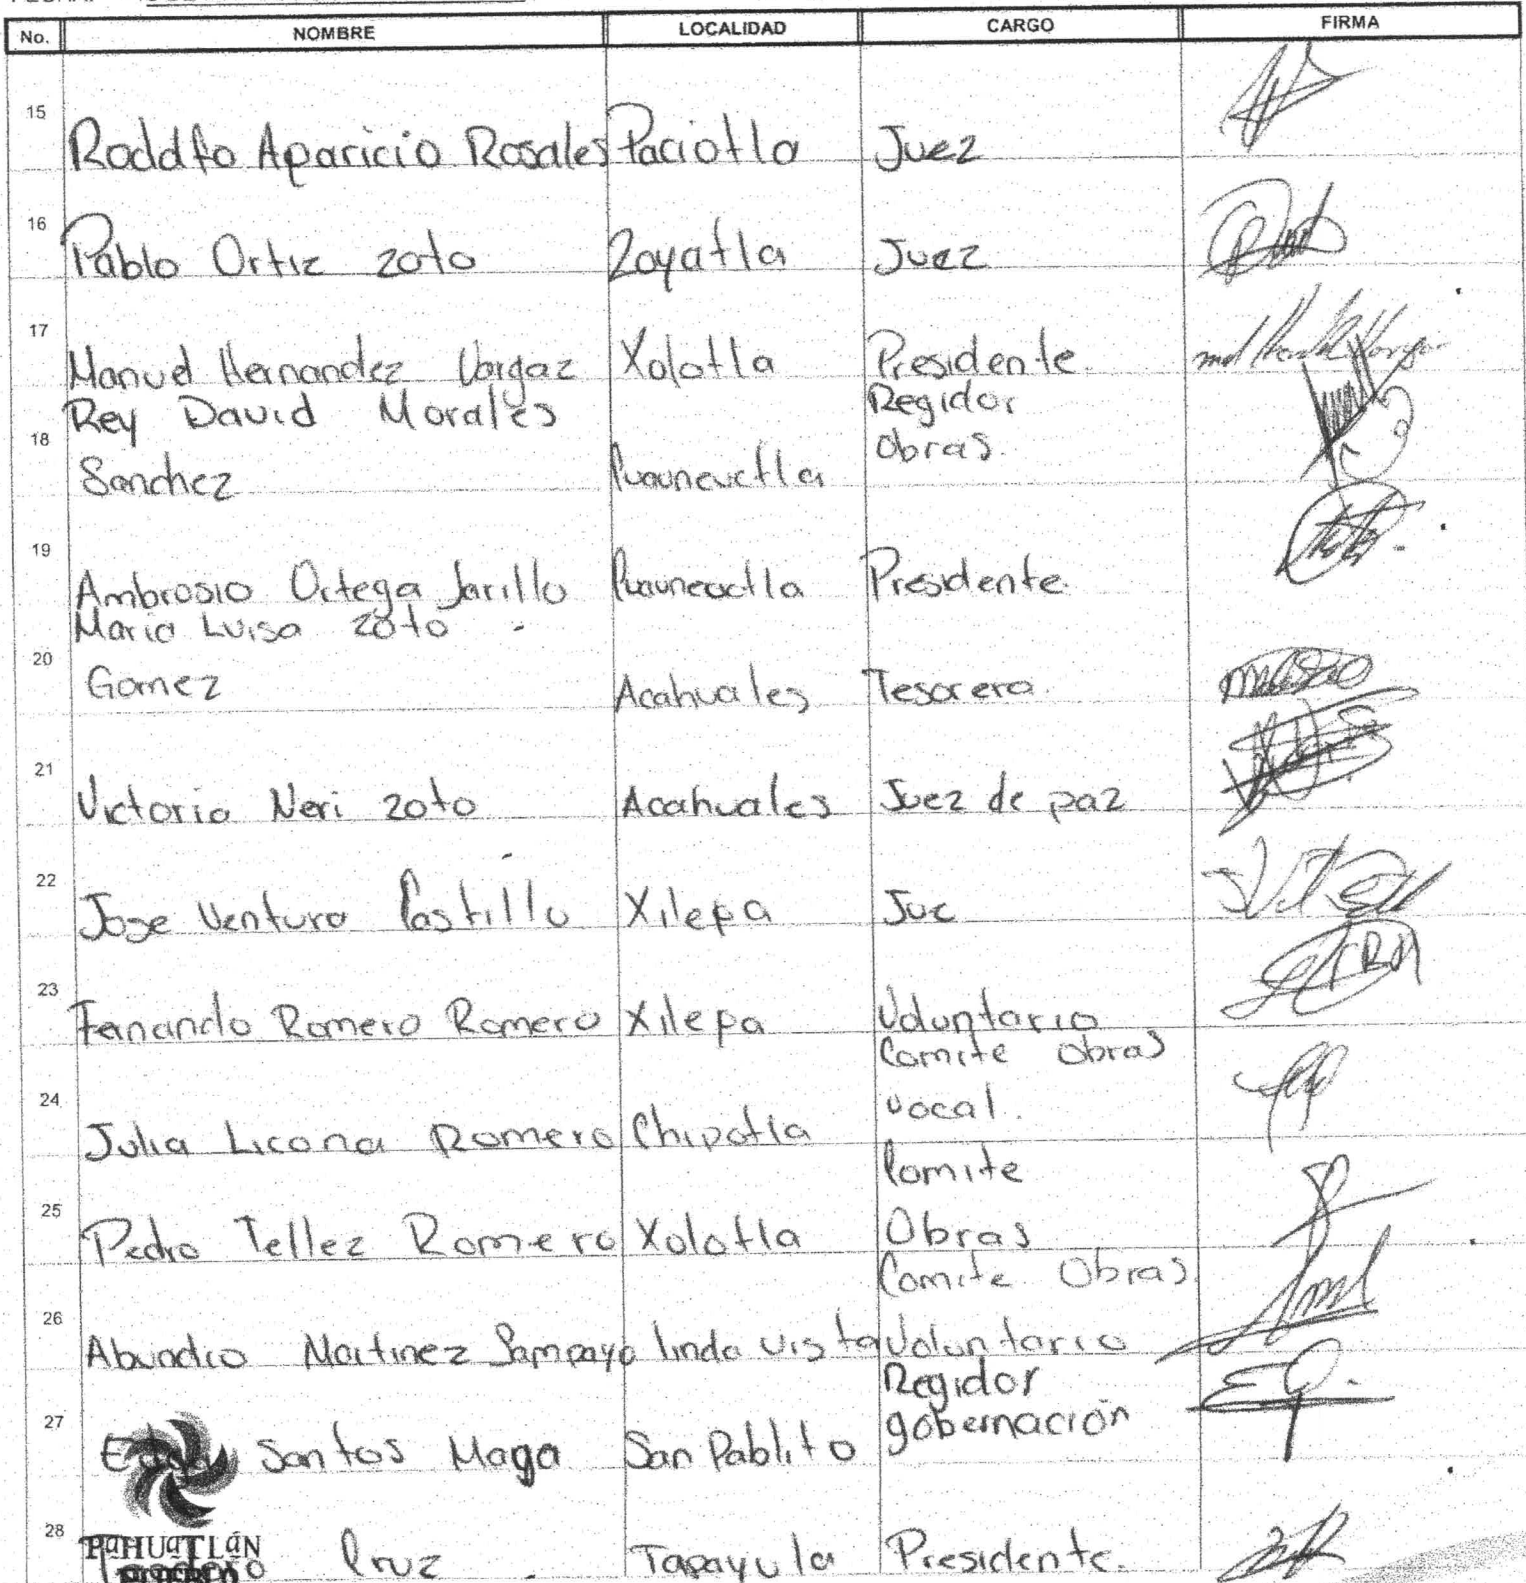 No. NOMBRE LOCALIDAD CARGO FIRMA
15 Rodolfo Aparicio Rosales Paciotla Juez
16 Pablo Ortiz zoto Zoyatla Juez
17 Manuel Hernandez Vargaz Xolotla Presidente.
Rey David Morales Regidor
18 Sanchez Cuauneuctla obras.
19 Ambrosio Ortega Jarillo Cuauneuctla Presidente.
Maria Luisa zoto
20 Gomez Acahuales Tesorera.
21 Victoria Neri zoto Acahuales Juez de paz
22 Jose Ventura Castillo Xilepa Jue
23 Fernando Romero Romero Xilepa Voluntario
Comite obras
24 Julia Licona Romero Chipotla vocal.
Comite
25 Pedro Tellez Romero Xolotla Obras
Comite Obras
26 Abundio Martinez Sampayo linda vista Voluntario
Regidor
27 Santos Maga San Pablito gobernación
28 Cruz Tapayula Presidente.
PaHUaTLáN